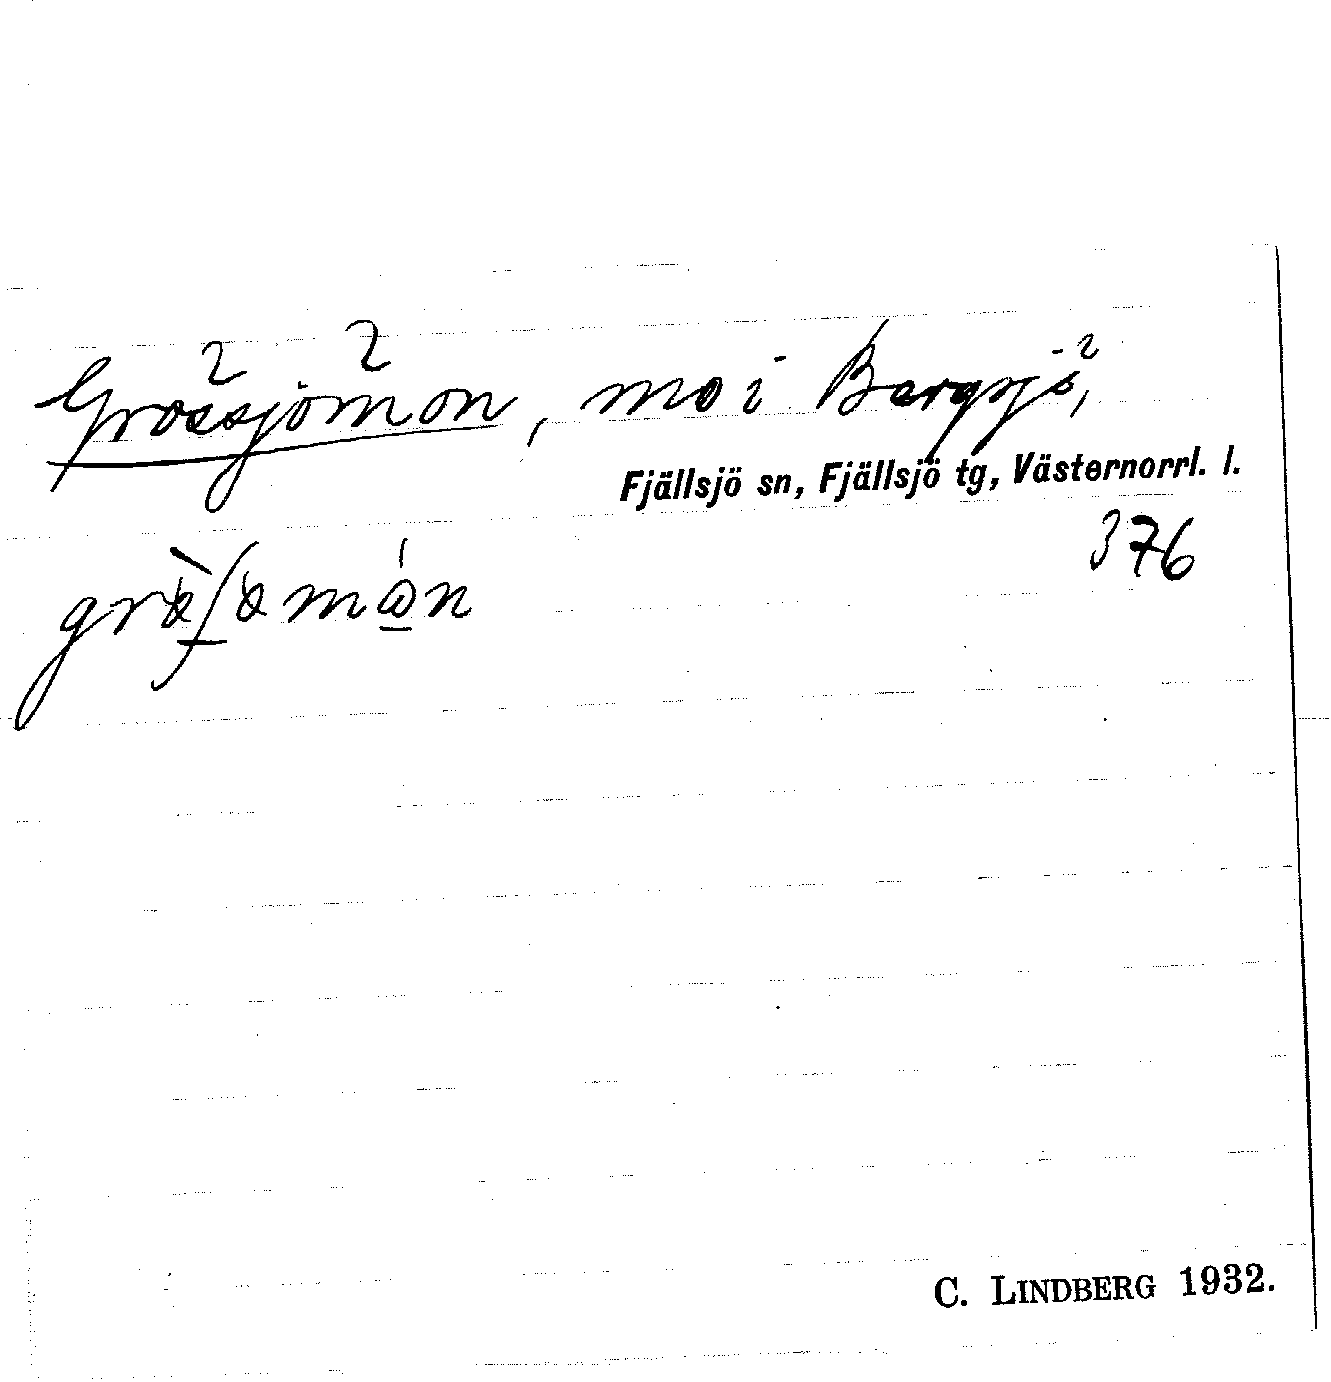 Grössjömon, mo i Bergsjö,
Fjällsjö sn, Fjällsjö tg, Västernorrl. l.
376
C. LINDBERG 1932.